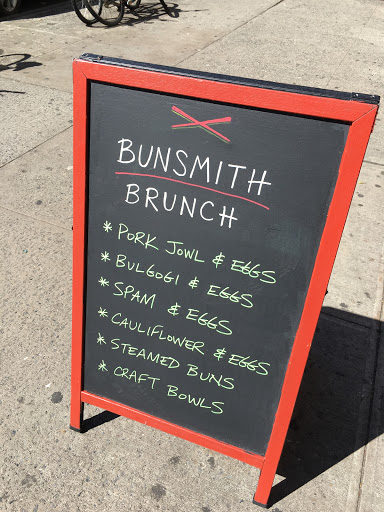 BUNSMITH
BRUNCH
* PORK JOWL & EGGS
* BULGOGI & EGGS
* SPAM & EGGS
* CAULIFLOWER & EGGS
* STEAMED BUNS
* CRAFT BOWLS